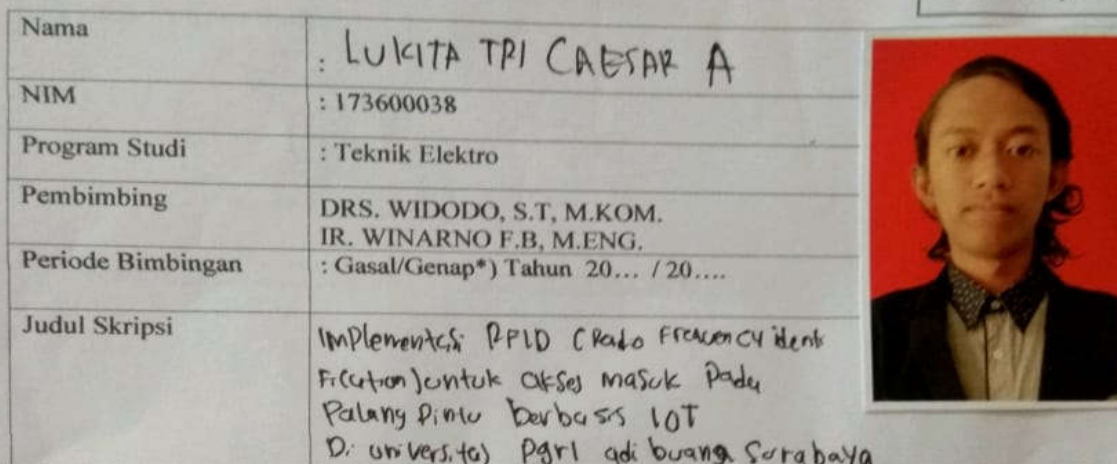 Nama : LUKITA TRI CAESAR A
NIM : 173600038
Program Studi : Teknik Elektro
Pembimbing DRS. WIDODO, S.T, M.KOM.
IR. WINARNO F.B, M.ENG.
Periode Bimbingan : Gasal/Genap*) Tahun 20... / 20....
Judul Skripsi Implementasi RFID (Radio Frecuency identi
Fication) untuk akses masuk Pada
Palang Pintu berbasis IOT
Di universitas Pgri adi buana Surabaya